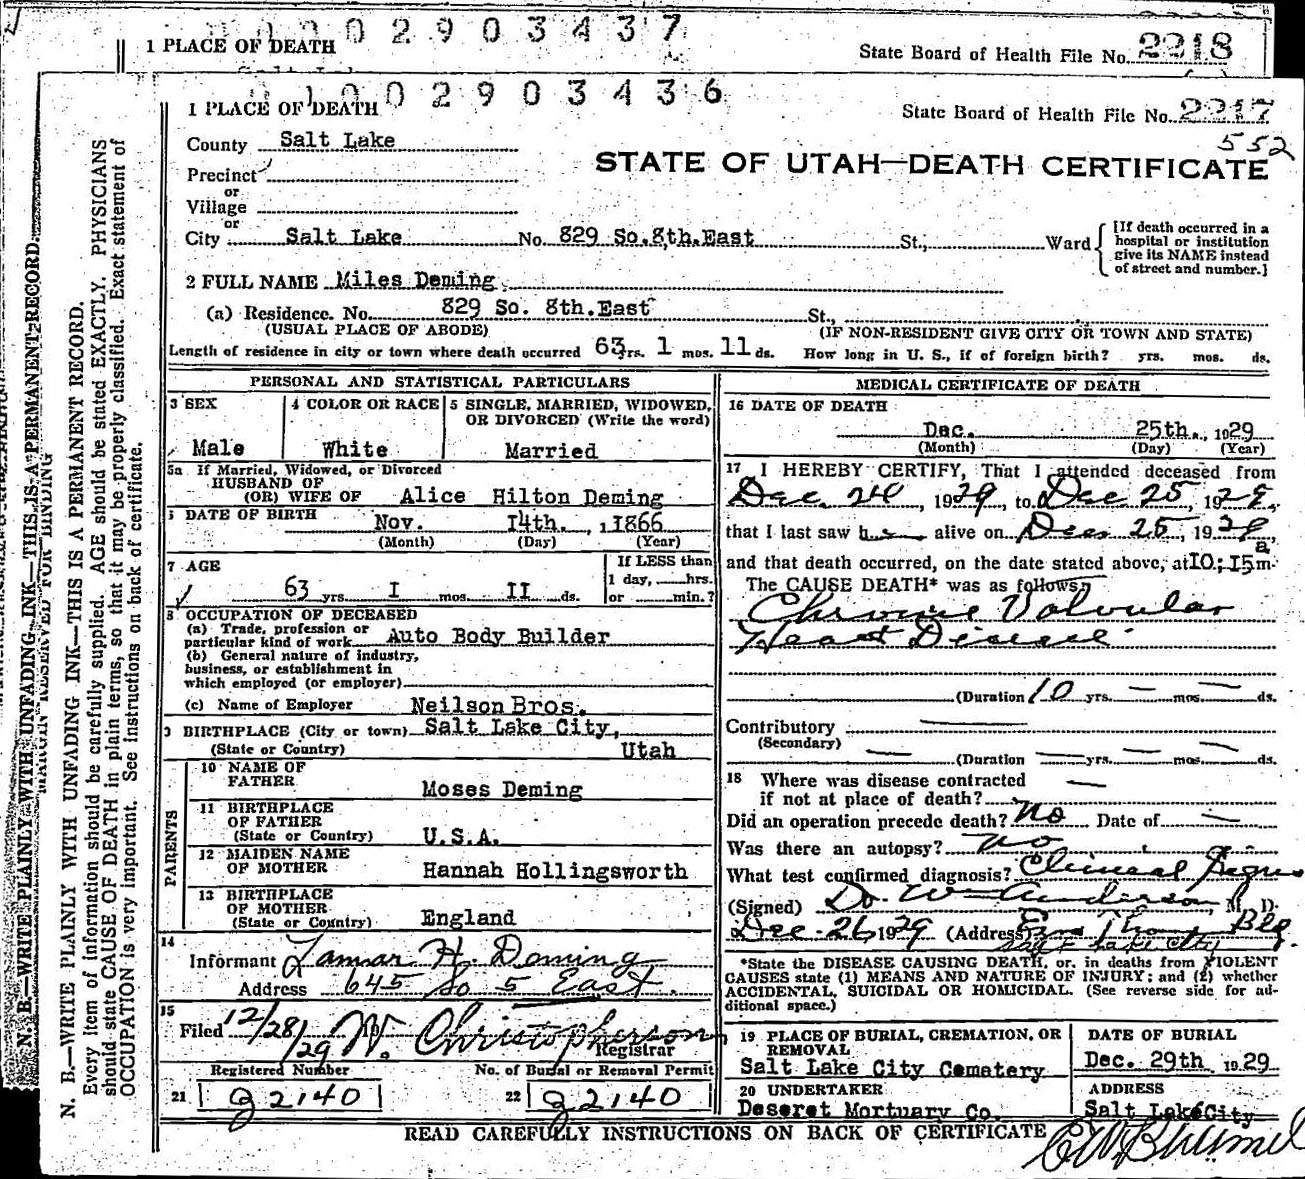 0 0 2 9 0 3 4 3 7
1 PLACE OF DEATH
State Board of Health File No. 2218
Salt Lake
1 0 0 2 9 0 3 4 3 6
1 PLACE OF DEATH
State Board of Health File No. 2217
552
County Salt Lake
STATE OF UTAH—DEATH CERTIFICATE
Precinct
or
Village
or
City Salt Lake No. 829 So.8th.East St., Ward
[If death occurred in a hospital or institution give its NAME instead of street and number.]
2 FULL NAME Miles Deming
(a) Residence. No. 829 So. 8th.East St.,
(USUAL PLACE OF ABODE) (IF NON-RESIDENT GIVE CITY OR TOWN AND STATE)
Length of residence in city or town where death occurred 63 yrs. 1 mos. 11 ds. How long in U. S., if of foreign birth? yrs. mos. ds.
PERSONAL AND STATISTICAL PARTICULARS
3 SEX 4 COLOR OR RACE 5 SINGLE, MARRIED, WIDOWED,
OR DIVORCED (Write the word)
Male White Married
5a If Married, Widowed, or Divorced
HUSBAND OF
(OR) WIFE OF Alice Hilton Deming
DATE OF BIRTH Nov. I4th. , 1866
(Month) (Day) (Year)
7 AGE If LESS than
63 yrs. I mos. II ds.
1 day, hrs.
or min.?
8 OCCUPATION OF DECEASED
(a) Trade, profession or
particular kind of work Auto Body Builder
(b) General nature of industry,
business, or establishment in
which employed (or employer)
(c) Name of Employer Neilson Bros.
9 BIRTHPLACE (City or town) Salt Lake City,
(State or Country) Utah
PARENTS
10 NAME OF
FATHER Moses Deming
11 BIRTHPLACE
OF FATHER
(State or Country) U.S.A.
12 MAIDEN NAME
OF MOTHER Hannah Hollingsworth
13 BIRTHPLACE
OF MOTHER
(State or Country) England
14
Informant Lamar H. Deming
Address 645 So 5 East.
15
Filed 12/28/29 W. Christopherson
Registrar
Registered Number No. of Burial or Removal Permit
21 G2140 22 G2140
MEDICAL CERTIFICATE OF DEATH
16 DATE OF DEATH
Dec. 25th., 1929
(Month) (Day) (Year)
17 I HEREBY CERTIFY, That I attended deceased from
Dec. 24, 1929, to Dec 25, 1929,
that I last saw h alive on Dec 25, 1929
and that death occurred, on the date stated above, at IO:I5 a m.
The CAUSE DEATH* was as follows:
Chronic Valvular
Heart Disease
(Duration 10 yrs. — mos — ds.
Contributory
(Secondary)
(Duration yrs. mos. ds.
18 Where was disease contracted
if not at place of death?
Did an operation precede death? No Date of —
Was there an autopsy? no
What test confirmed diagnosis? Clinical
(Signed) Dr. Wm Anderson, M. D.
Dec-26, 1929 (Address)
Salt Lake City
*State the DISEASE CAUSING DEATH, or. in deaths from VIOLENT
CAUSES state (1) MEANS AND NATURE OF INJURY; and (2) whether
ACCIDENTAL, SUICIDAL OR HOMICIDAL. (See reverse side for ad-
ditional space.)
19 PLACE OF BURIAL, CREMATION, OR
REMOVAL
Salt Lake City Cemetery
DATE OF BURIAL
Dec. 29th 1929
20 UNDERTAKER
Deseret Mortuary Co.
ADDRESS
Salt Lake City
READ CAREFULLY INSTRUCTIONS ON BACK OF CERTIFICATE
N. B.—WRITE PLAINLY WITH UNFADING INK—THIS IS A PERMANENT RECORD
RESERVED FOR BINDING
N. B.—WRITE PLAINLY WITH UNFADING INK—THIS IS A PERMANENT RECORD.
Every item of information should be carefully supplied. AGE should be stated EXACTLY. PHYSICIANS
should state CAUSE OF DEATH in plain terms, so that it may be properly classified. Exact statement of
OCCUPATION is very important. See instructions on back of certificate.